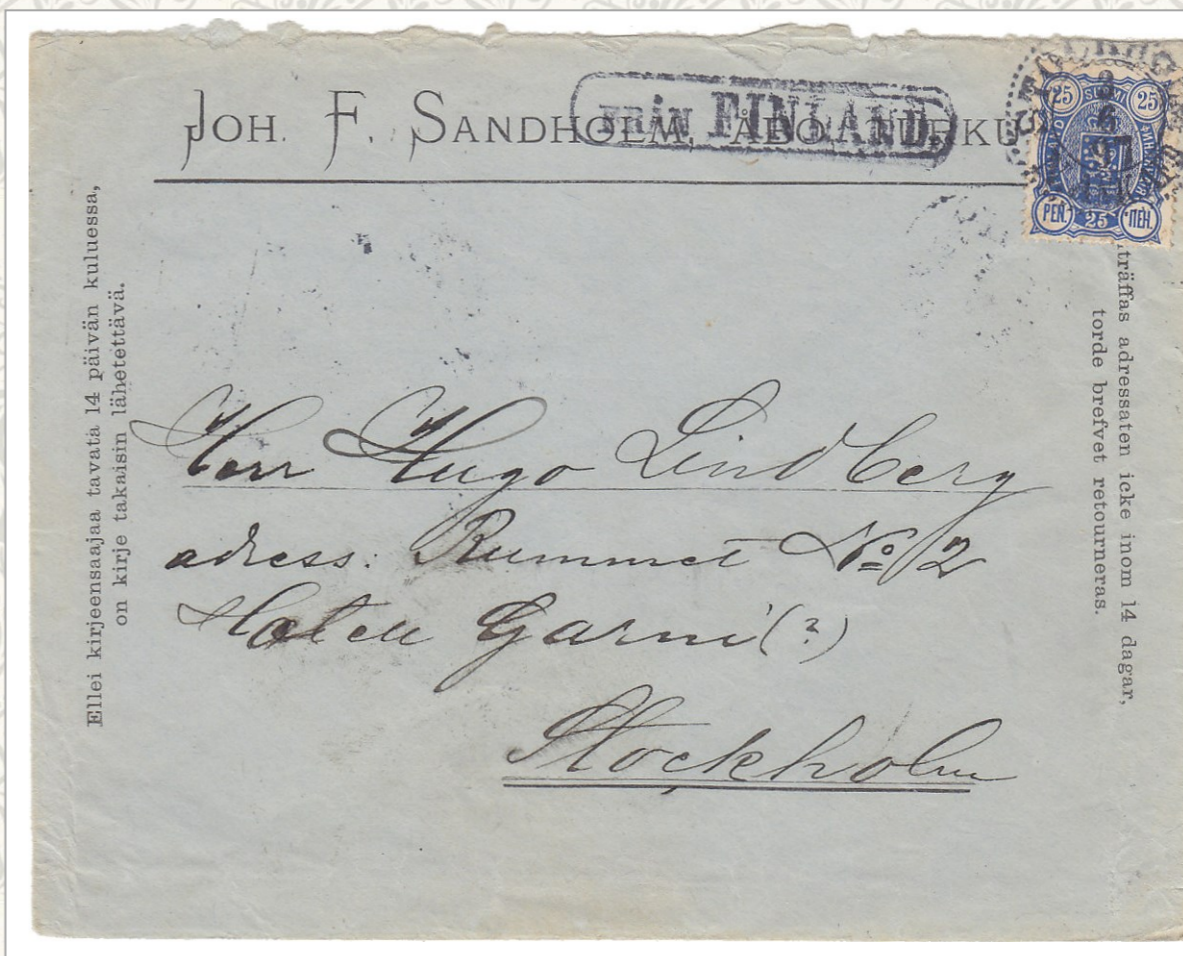 JOH. F. SANDHOLM, ÅBO-TURKU
FRÅN FINLAND.
25 SUOMI 25
PEN. 25 ПЕН.
Ellei kirjeensaajaa tavata 14 päivän kuluessa,
on kirje takaisin lähetettävä.
träffas adressaten icke inom 14 dagar,
torde brefvet retourneras.
Herr Hugo Lindberg
adress: Rummet No 2
Hotell Garni (?)
Stockholm